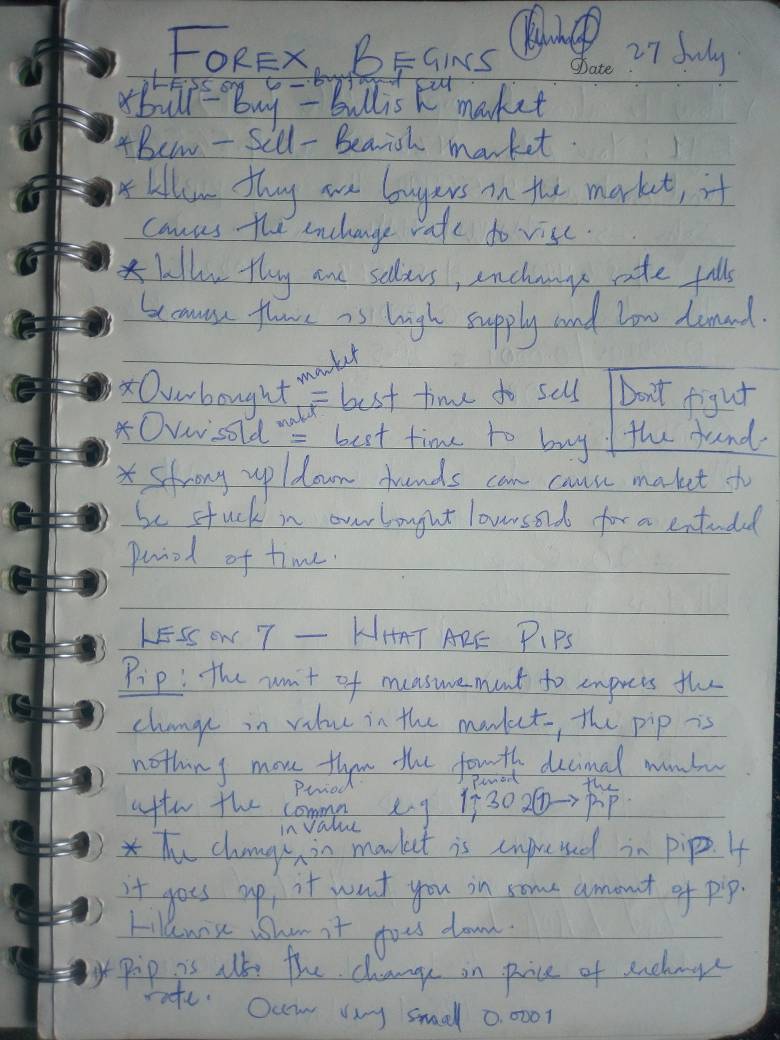 FOREX BEGINS
Date 27 July
LESSON 6 - buy and sell
* Bull - Buy - Bullish market
* Bear - Sell - Bearish market.
* When they are buyers in the market, it
causes the exchange rate to rise.
* When they are sellers, exchange rate falls
because there is high supply and low demand.
market
* Overbought = best time to sell
Don't fight
market
* Oversold = best time to buy.
the trend.
* Strong up/down trends can cause market to
be stuck in overbought/oversold for a extended
period of time.
LESSON 7 - WHAT ARE PIPS
Pip: the unit of measurement to express the
change in value in the market, the pip is
nothing more than the fourth decimal number
Period Period the
after the comma e.g 1,3020① → pip.
in value
* The change ^ in market is expressed in pip. If
it goes up, it went you in some amount of pip.
Likewise when it goes down.
* pip is also the change in price of exchange
rate. Occur very small 0.0001